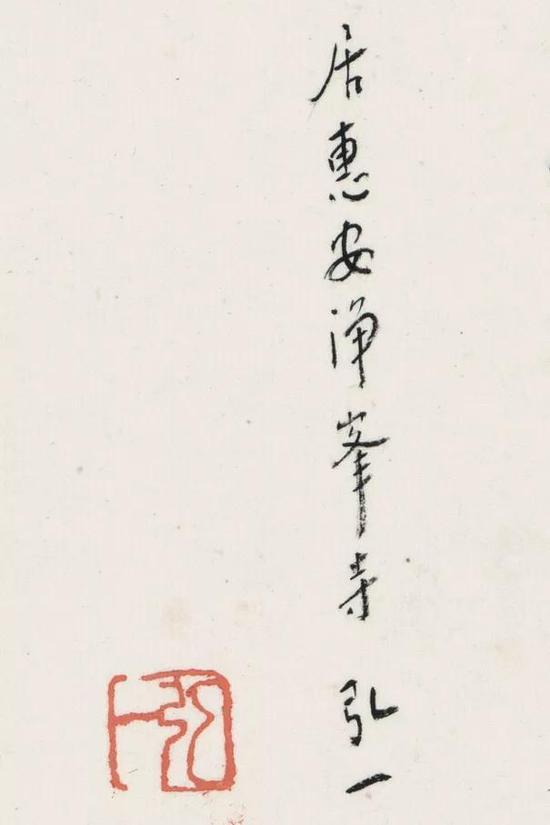 居惠安净峯寺 弘一